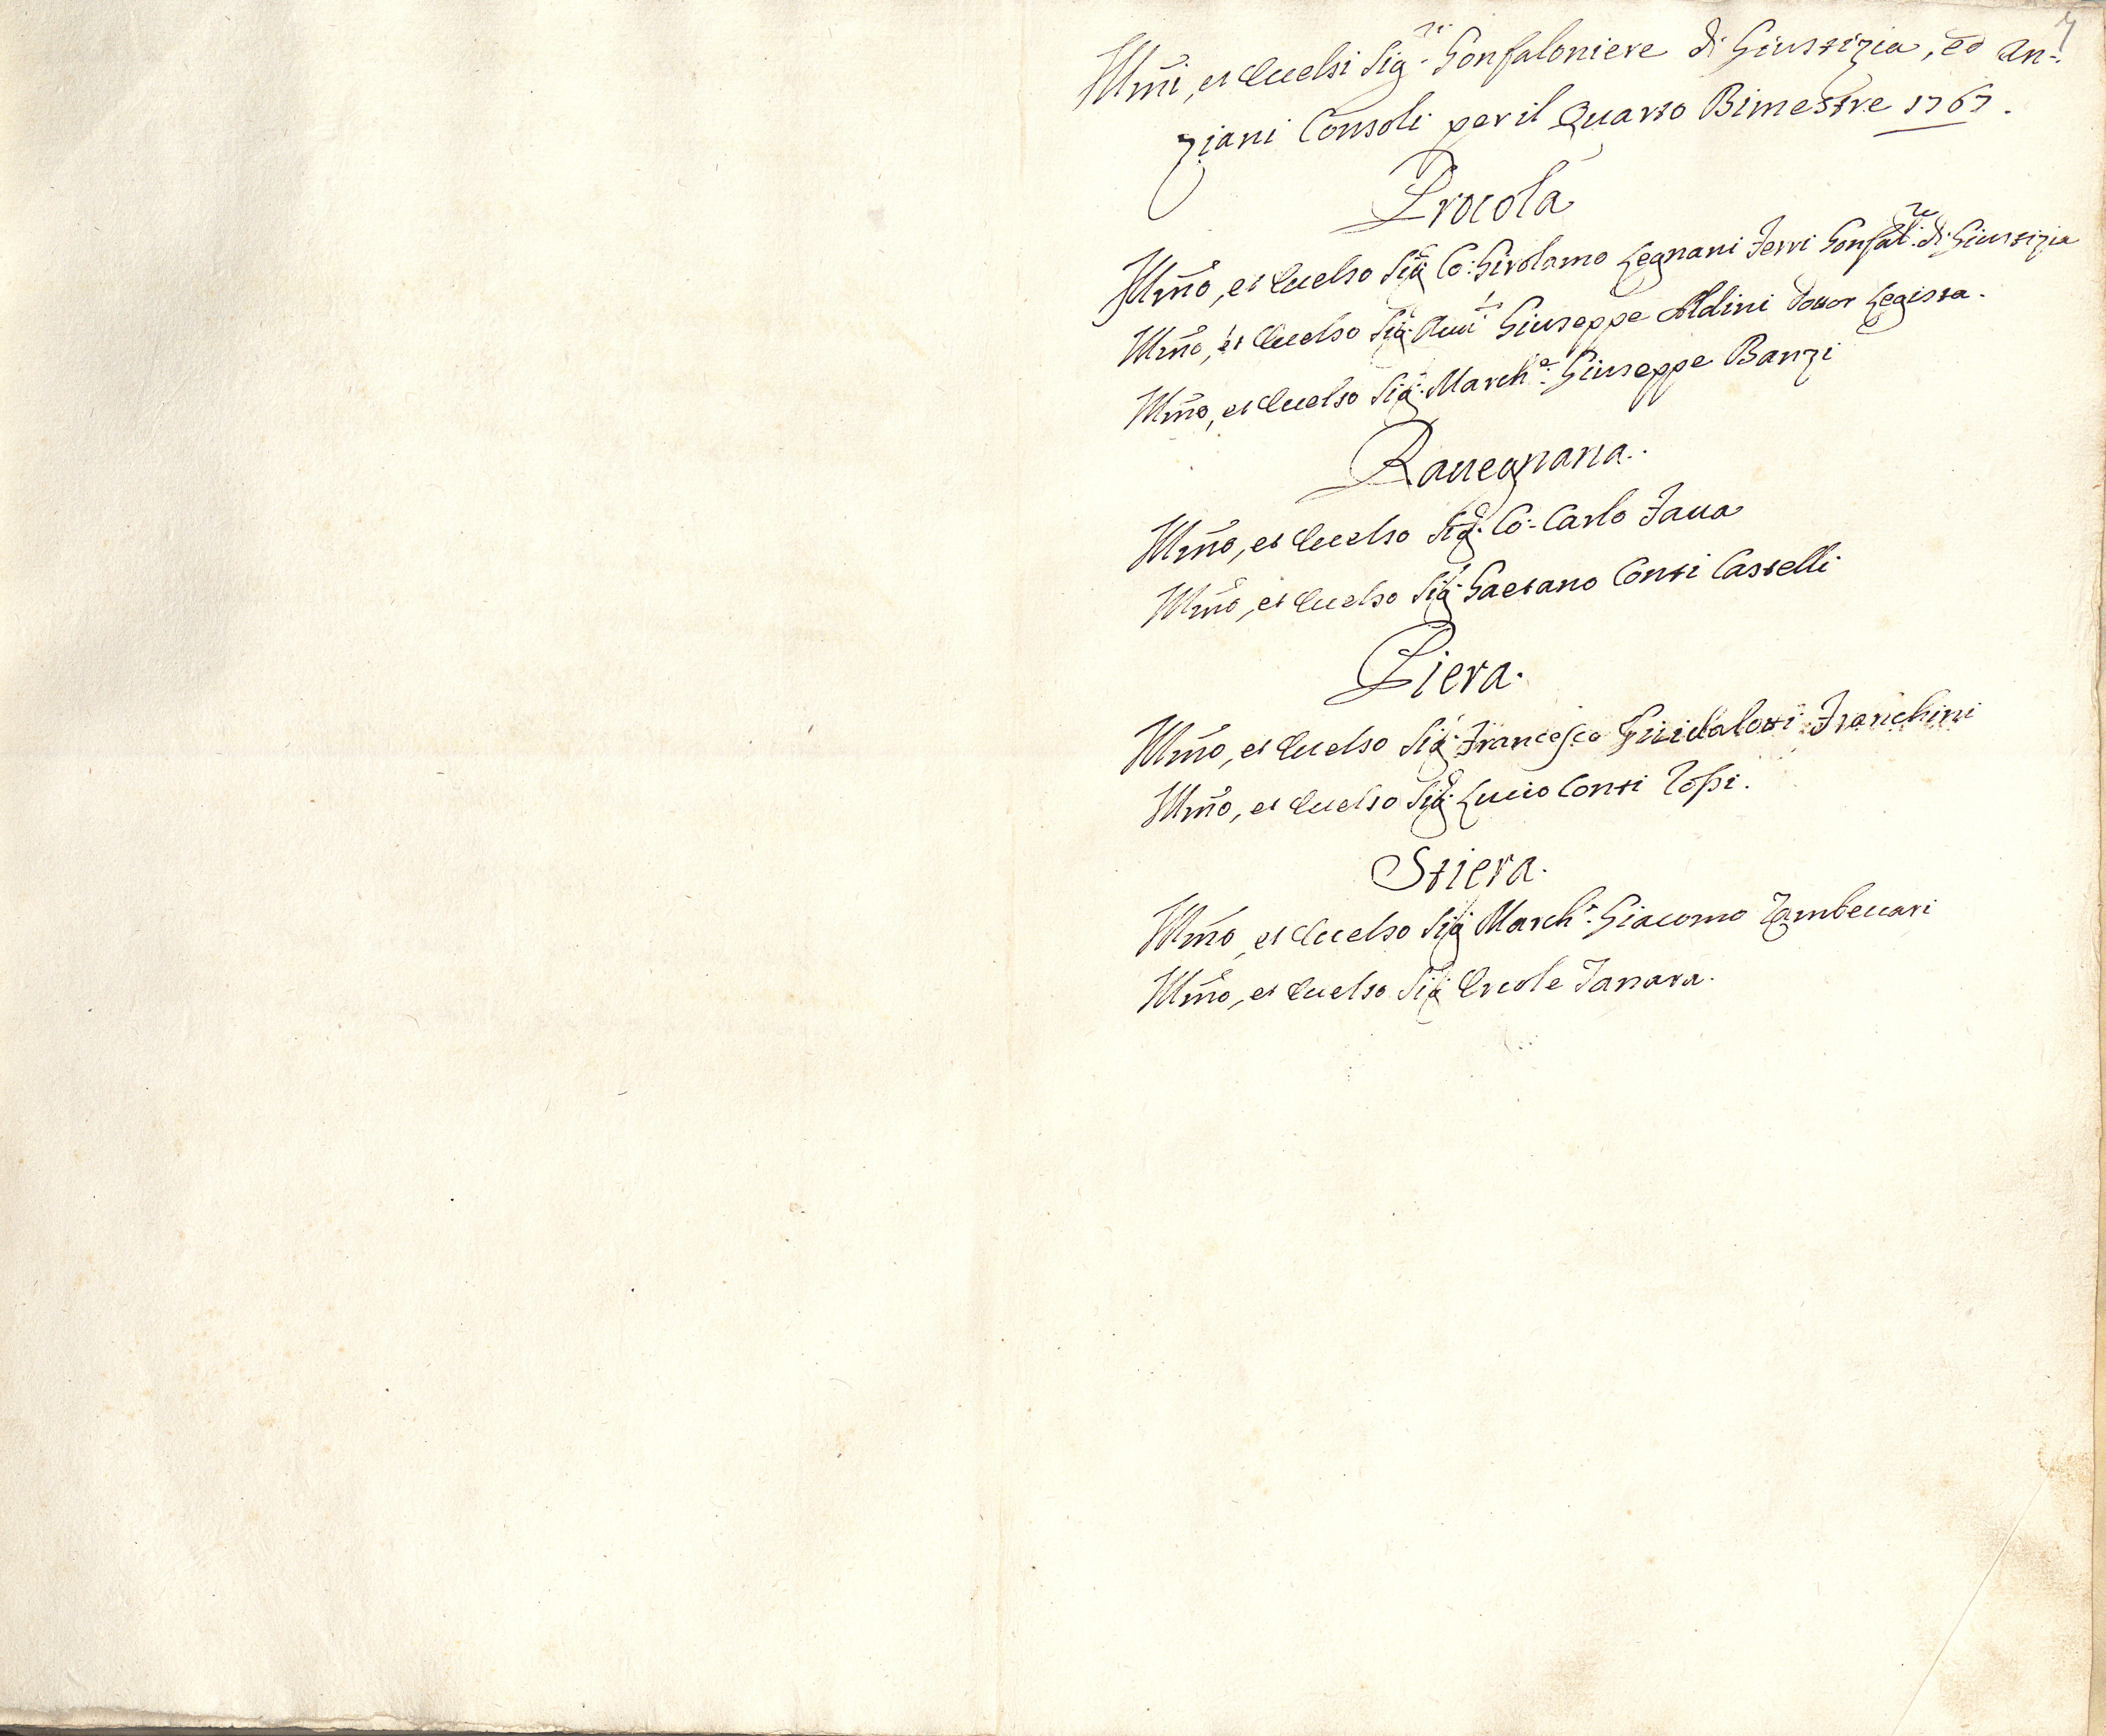 7
Illmi, et Eccelsi Sigri Gonfaloniere di Giustizia, ed An=
ziani Consoli per il Quarto Bimestre 1767.
Procola
Illmo, et Eccelso Sig. Co: Girolamo Legnani Ferri Gonfalre di Giustizia
Illmo, et Eccelso Sig. Giuseppe Aldini Dottor Legista.
Illmo, et Eccelso Sig. Marche. Giuseppe Banzi
Rauegnana.
Illmo, et Eccelso Sig. Co: Carlo Faua
Illmo, et Eccelso Sig. Gaetano Conti Castelli
Piera.
Illmo, et Eccelso Sig. Francesco Guidalotti Franchini
Illmo, et Eccelso Sig. Lucio Conti
Stiera.
Illmo, et Eccelso Sig. Marche. Giacomo Zambeccari
Illmo, et Eccelso Sig. Ercole Tanara.